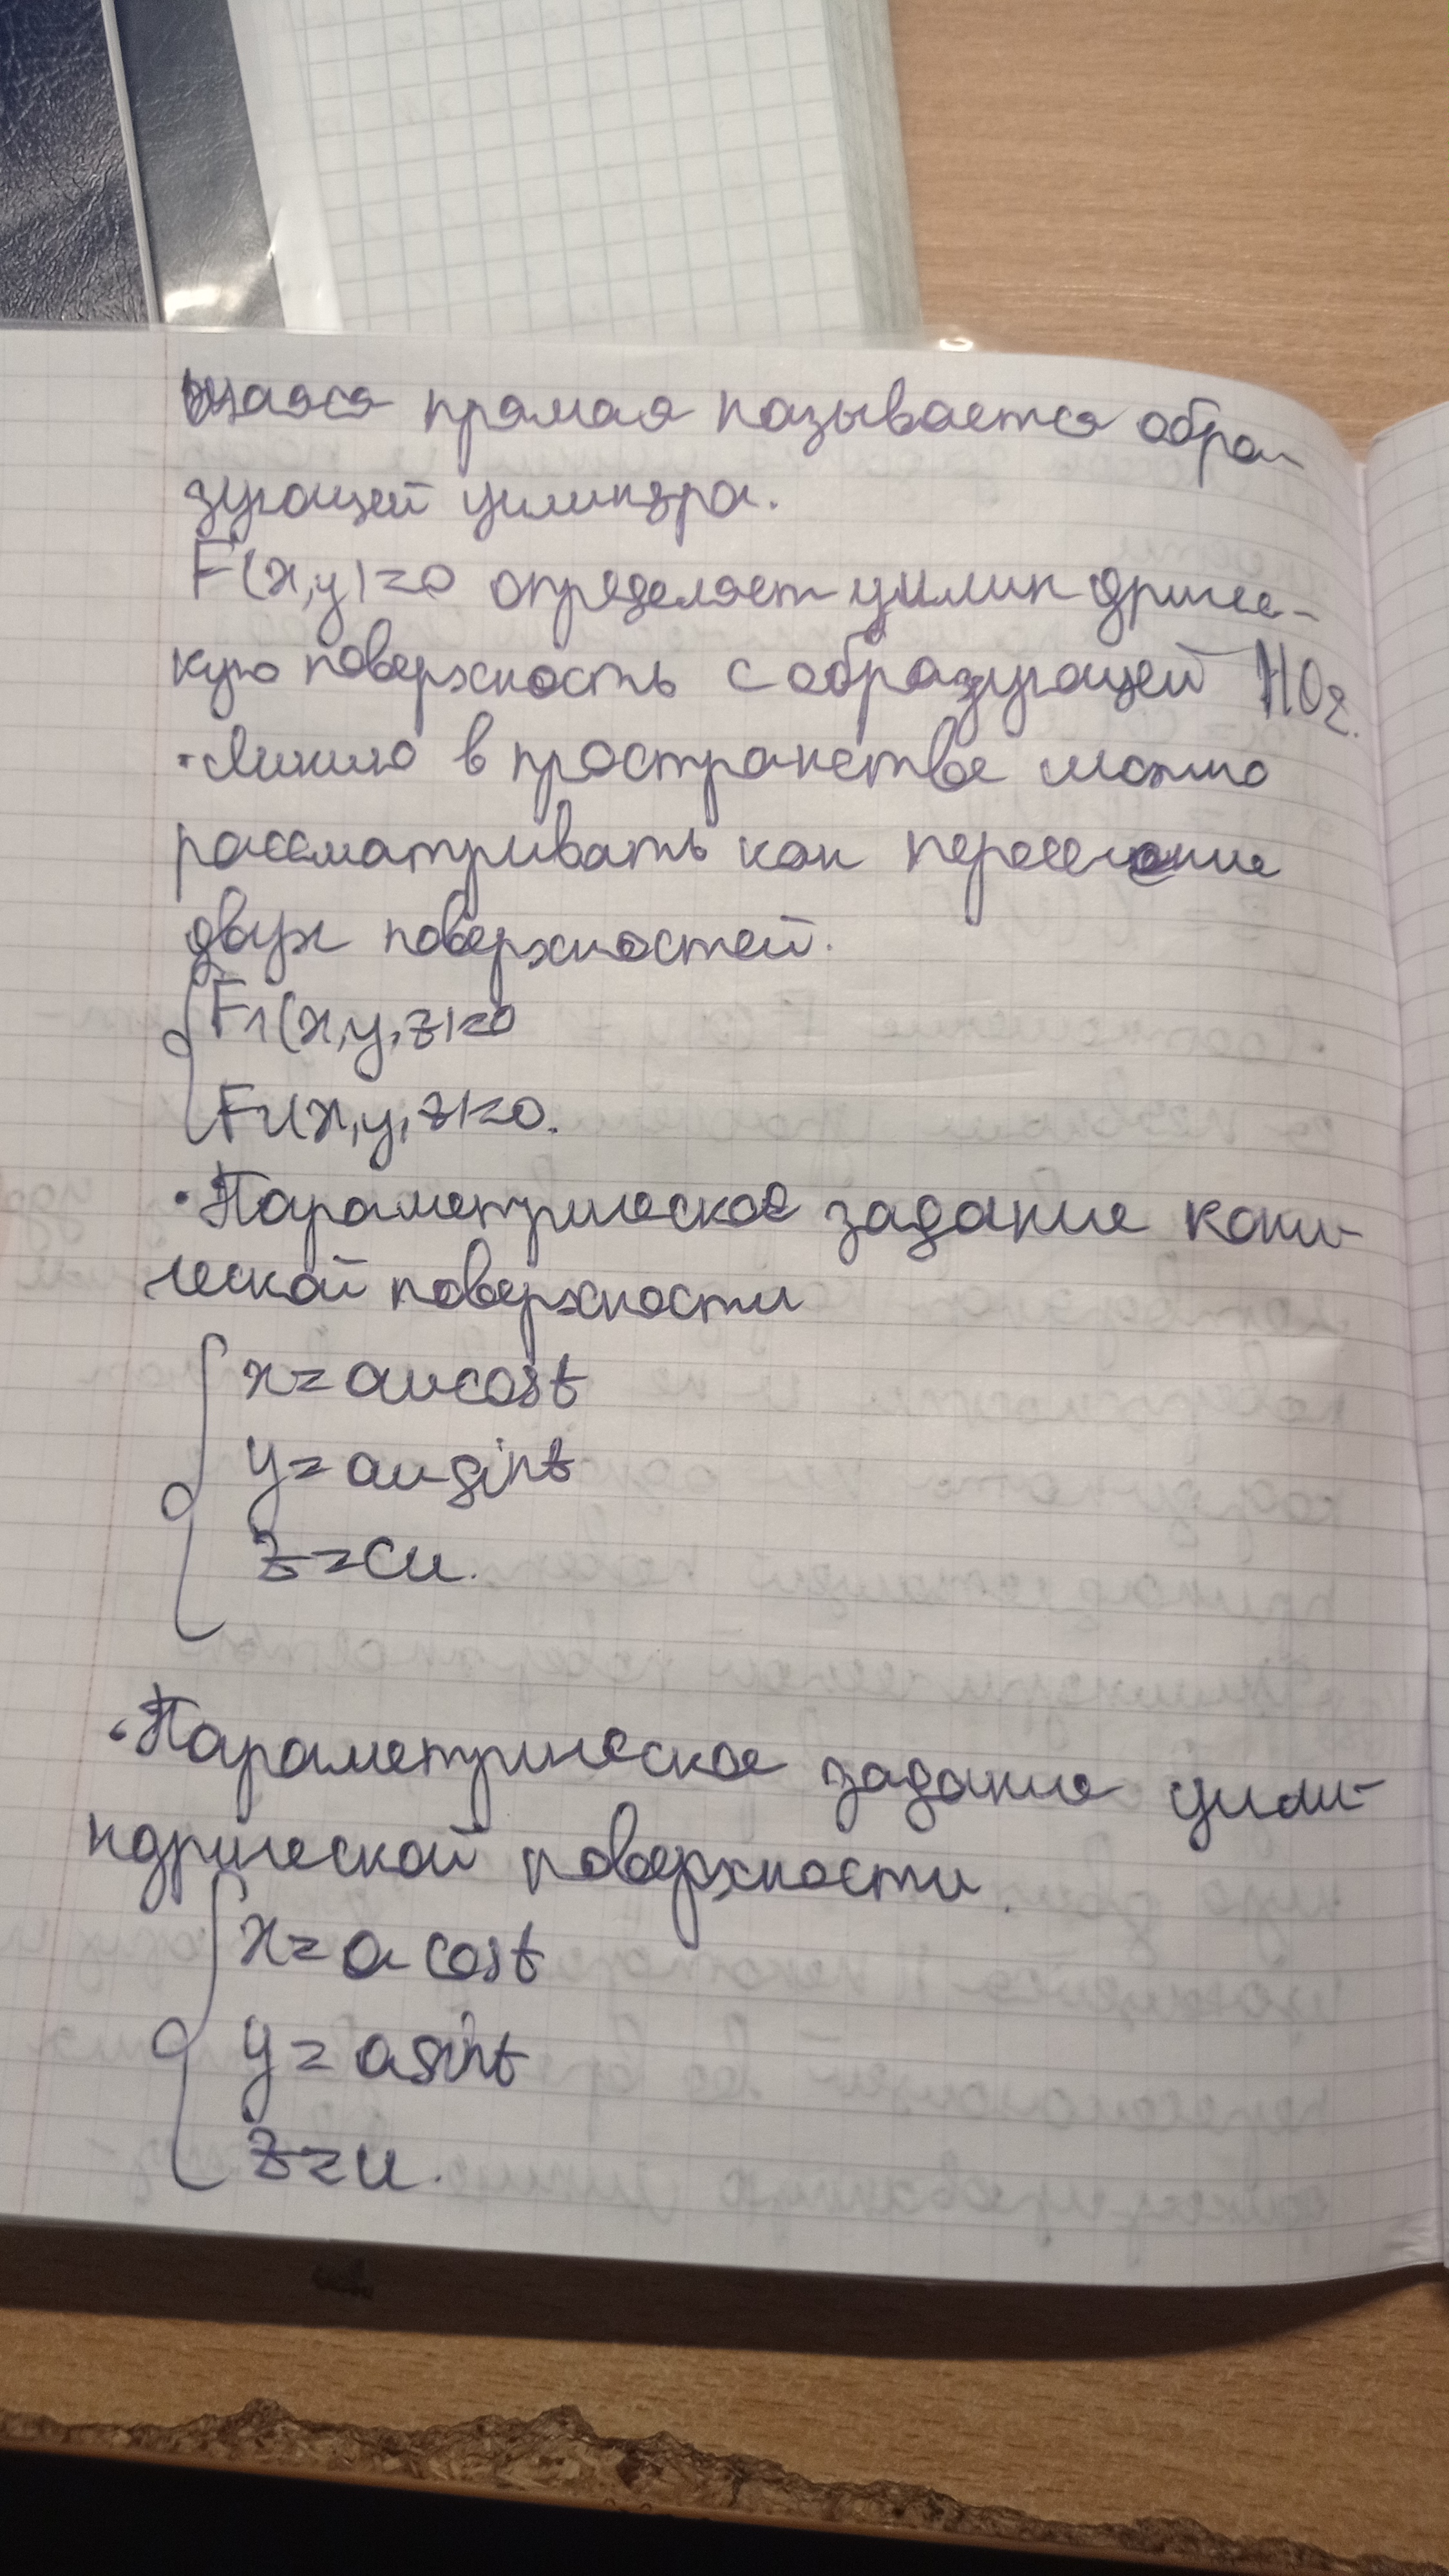 щаяся прямая называется обра-
зующей цилиндра.
F(x,y)=0 определяет цилиндричес-
кую поверхность с образующей ||Oz.
• Линию в пространстве можно
рассматривать как пересечение
двух поверхностей.
F1(x,y,z)=0
F2(x,y,z)=0.
• Параметрическое задание кони-
ческой поверхности
x=au cost
y=au sint
z=cu.
• Параметрическое задание цили-
ндрической поверхности.
x=a cost
y=a sint
z=u.